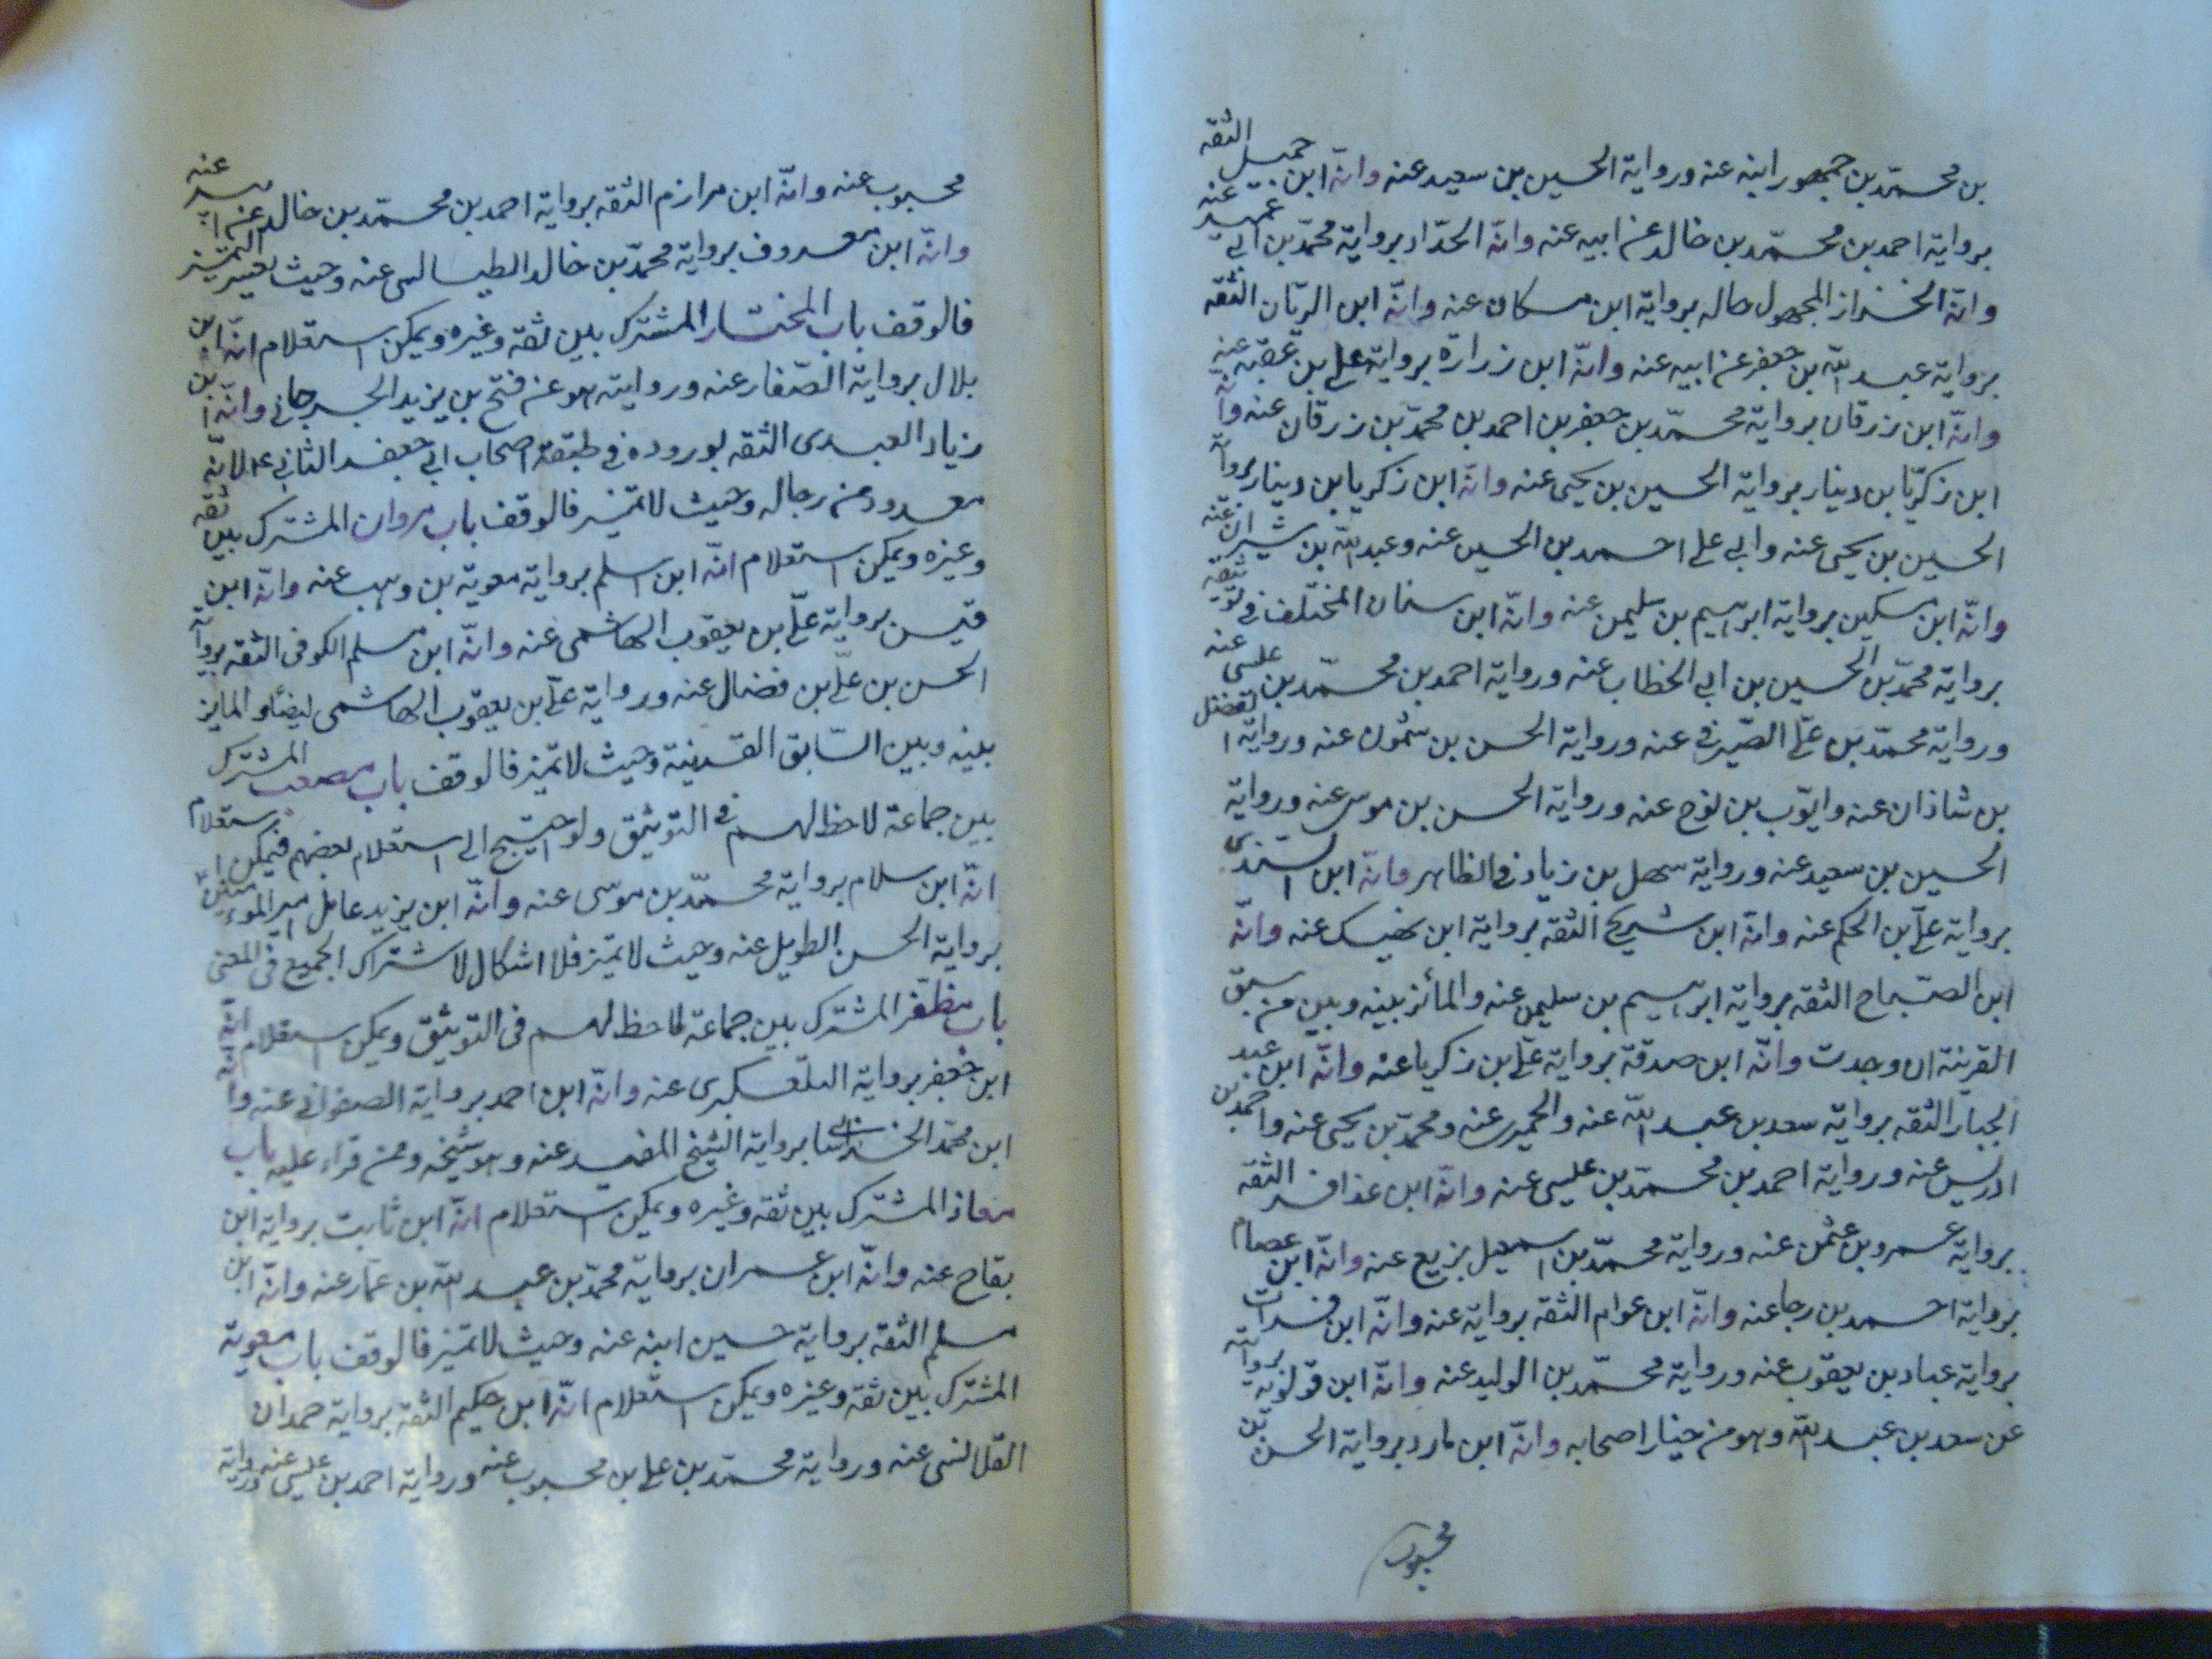 بن محمّد بن جمهور ابنه عنه ورواية الحسين بن سعيد عنه وانّه ابن جميل الثقه
برواية احمد بن محمّد بن خالد عن ابيه عنه وانّه الحدّاد برواية محمّد بن ابي عمير عنه
وانّه الخزاز المجهول حاله برواية ابن مسكان عنه وانّه ابن الريّان الثقه
برواية عبد الله بن جعفر عن ابيه عنه وانّه ابن زرارة برواية علي بن عقبه عنه
وانّه ابن زرقان برواية محمّد بن جعفر بن احمد بن محمّد بن زرقان عنه وانّه
ابن زكريّا بن دينار برواية الحسين بن يحيى عنه وانّه ابن زكريا بن دينار برواية
الحسين بن يحيى عنه وابي علي احمد بن الحسين عنه وعبد الله بن شيران عنه
وانّه ابن مسكين برواية ابرهيم بن سليمن عنه وانّه ابن سنان المختلف في توثيقه
برواية محمّد بن الحسين بن ابي الخطاب عنه ورواية احمد بن محمّد بن عيسى عنه
ورواية محمّد بن عليّ الصّيرفي عنه ورواية الحسن بن شمون عنه ورواية الفضل
بن شاذان عنه وايّوب بن نوح عنه ورواية الحسن بن موسى عنه ورواية
الحسين بن سعيد عنه ورواية سهل بن زياد في الظاهر وانّه ابن السندى
برواية عليّ بن الحكم عنه وانّه ابن شريح الثقه برواية ابن نهيك عنه وانّه
ابن الصّباح الثقه برواية ابرهيم بن سليمن عنه والمائز بينه وبين من سبق
القرينة ان وجدت وانّه ابن صدقة برواية عليّ بن زكريا عنه وانّه ابن عبد
الجبار الثقه برواية سعد بن عبد الله عنه والحميرى عنه ومحمّد بن يحيى عنه واحمد بن
ادريس عنه ورواية احمد بن محمّد بن عيسى عنه وانّه ابن عذافر الثقه
برواية عمرو بن عثمن عنه ورواية محمّد بن اسمعيل بزيع عنه وانّه ابن عصام
برواية احمد بن رجا عنه وانّه ابن عوام الثقه برواية عنه وانّه ابن فرات
برواية عباد بن يعقوب عنه ورواية محمّد بن الوليد عنه وانّه ابن قولويه بروايته
عن سعد بن عبد الله وهو من خيار اصحابه وانّه ابن مارد برواية الحسن بن
محبوب
محبوب عنه وانّه ابن مرازم الثقه برواية احمد بن محمّد بن خالد عن ابيه عنه
وانّه ابن معروف برواية محمّد بن خالد الطيالسى عنه وحيث يعسر التميّز
فالوقف باب المختار المشترك بين ثقه وغيره ويمكن استعلام انّه ابن
بلال برواية الصّفار عنه وروايته هو عن فتح بن يزيد الجرجاني وانّه ابن
زياد العبدى الثقه لوروده في طبقة اصحاب ابي جعفر الثاني ع لانّه
معدود من رجاله وحيث لا تميّز فالوقف باب مروان المشترك بين ثقه
وغيره ويمكن استعلام انّه ابن اسلم برواية معوية بن وهب عنه وانّه ابن
قيس برواية عليّ بن يعقوب الهاشمى عنه وانّه ابن مسلم الكوفى الثقه برواية
الحسن بن عليّ بن فضال عنه ورواية عليّ بن يعقوب الهاشمى ايضا والمايز
بينه وبين السّابق القرينة وحيث لا تميّز فالوقف باب مصعب المشترك
بين جماعة لا حظ لهم في التوثيق ولو احتيج الى استعلام بعضهم فيمكن استعلام
انّه ابن سلام برواية محمّد بن موسى عنه وانّه ابن يزيد عامل امير المؤمنين ع
برواية الحسن الطويل عنه وحيث لا تميّز فلا اشكال لاشتراك الجميع فى المعنى
باب مظفّر المشترك بين جماعة لا حظ لهم فى التوثيق ويمكن استعلام انّه
ابن جعفر برواية التلعكبرى عنه وانّه ابن احمد برواية الصفواني عنه وانّه
ابن محمّد الخراسانى برواية الشيخ المفيد عنه وهو شيخه وممن قراء عليه باب
معاذ المشترك بين ثقه وغيره ويمكن استعلام انّه ابن ثابت برواية ابن
بقاح عنه وانّه ابن عمران برواية محمّد بن عبد الله بن عمّار عنه وانّه ابن
مسلم الثقه برواية حسين ابنه عنه وحيث لا تميّز فالوقف باب معوية
المشترك بين ثقه وغيره ويمكن استعلام انّه ابن حكيم الثقه برواية حمدان
القلانسى عنه ورواية محمّد بن علي بن محبوب عنه ورواية احمد بن عيسى عنه ورواية